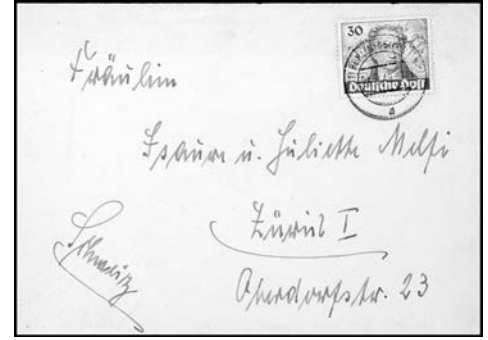 30
Deutsche Post
Fräulein
Isaure u. Juliette Melfi
Zürich I
Schweiz
Oberdorfstr. 23